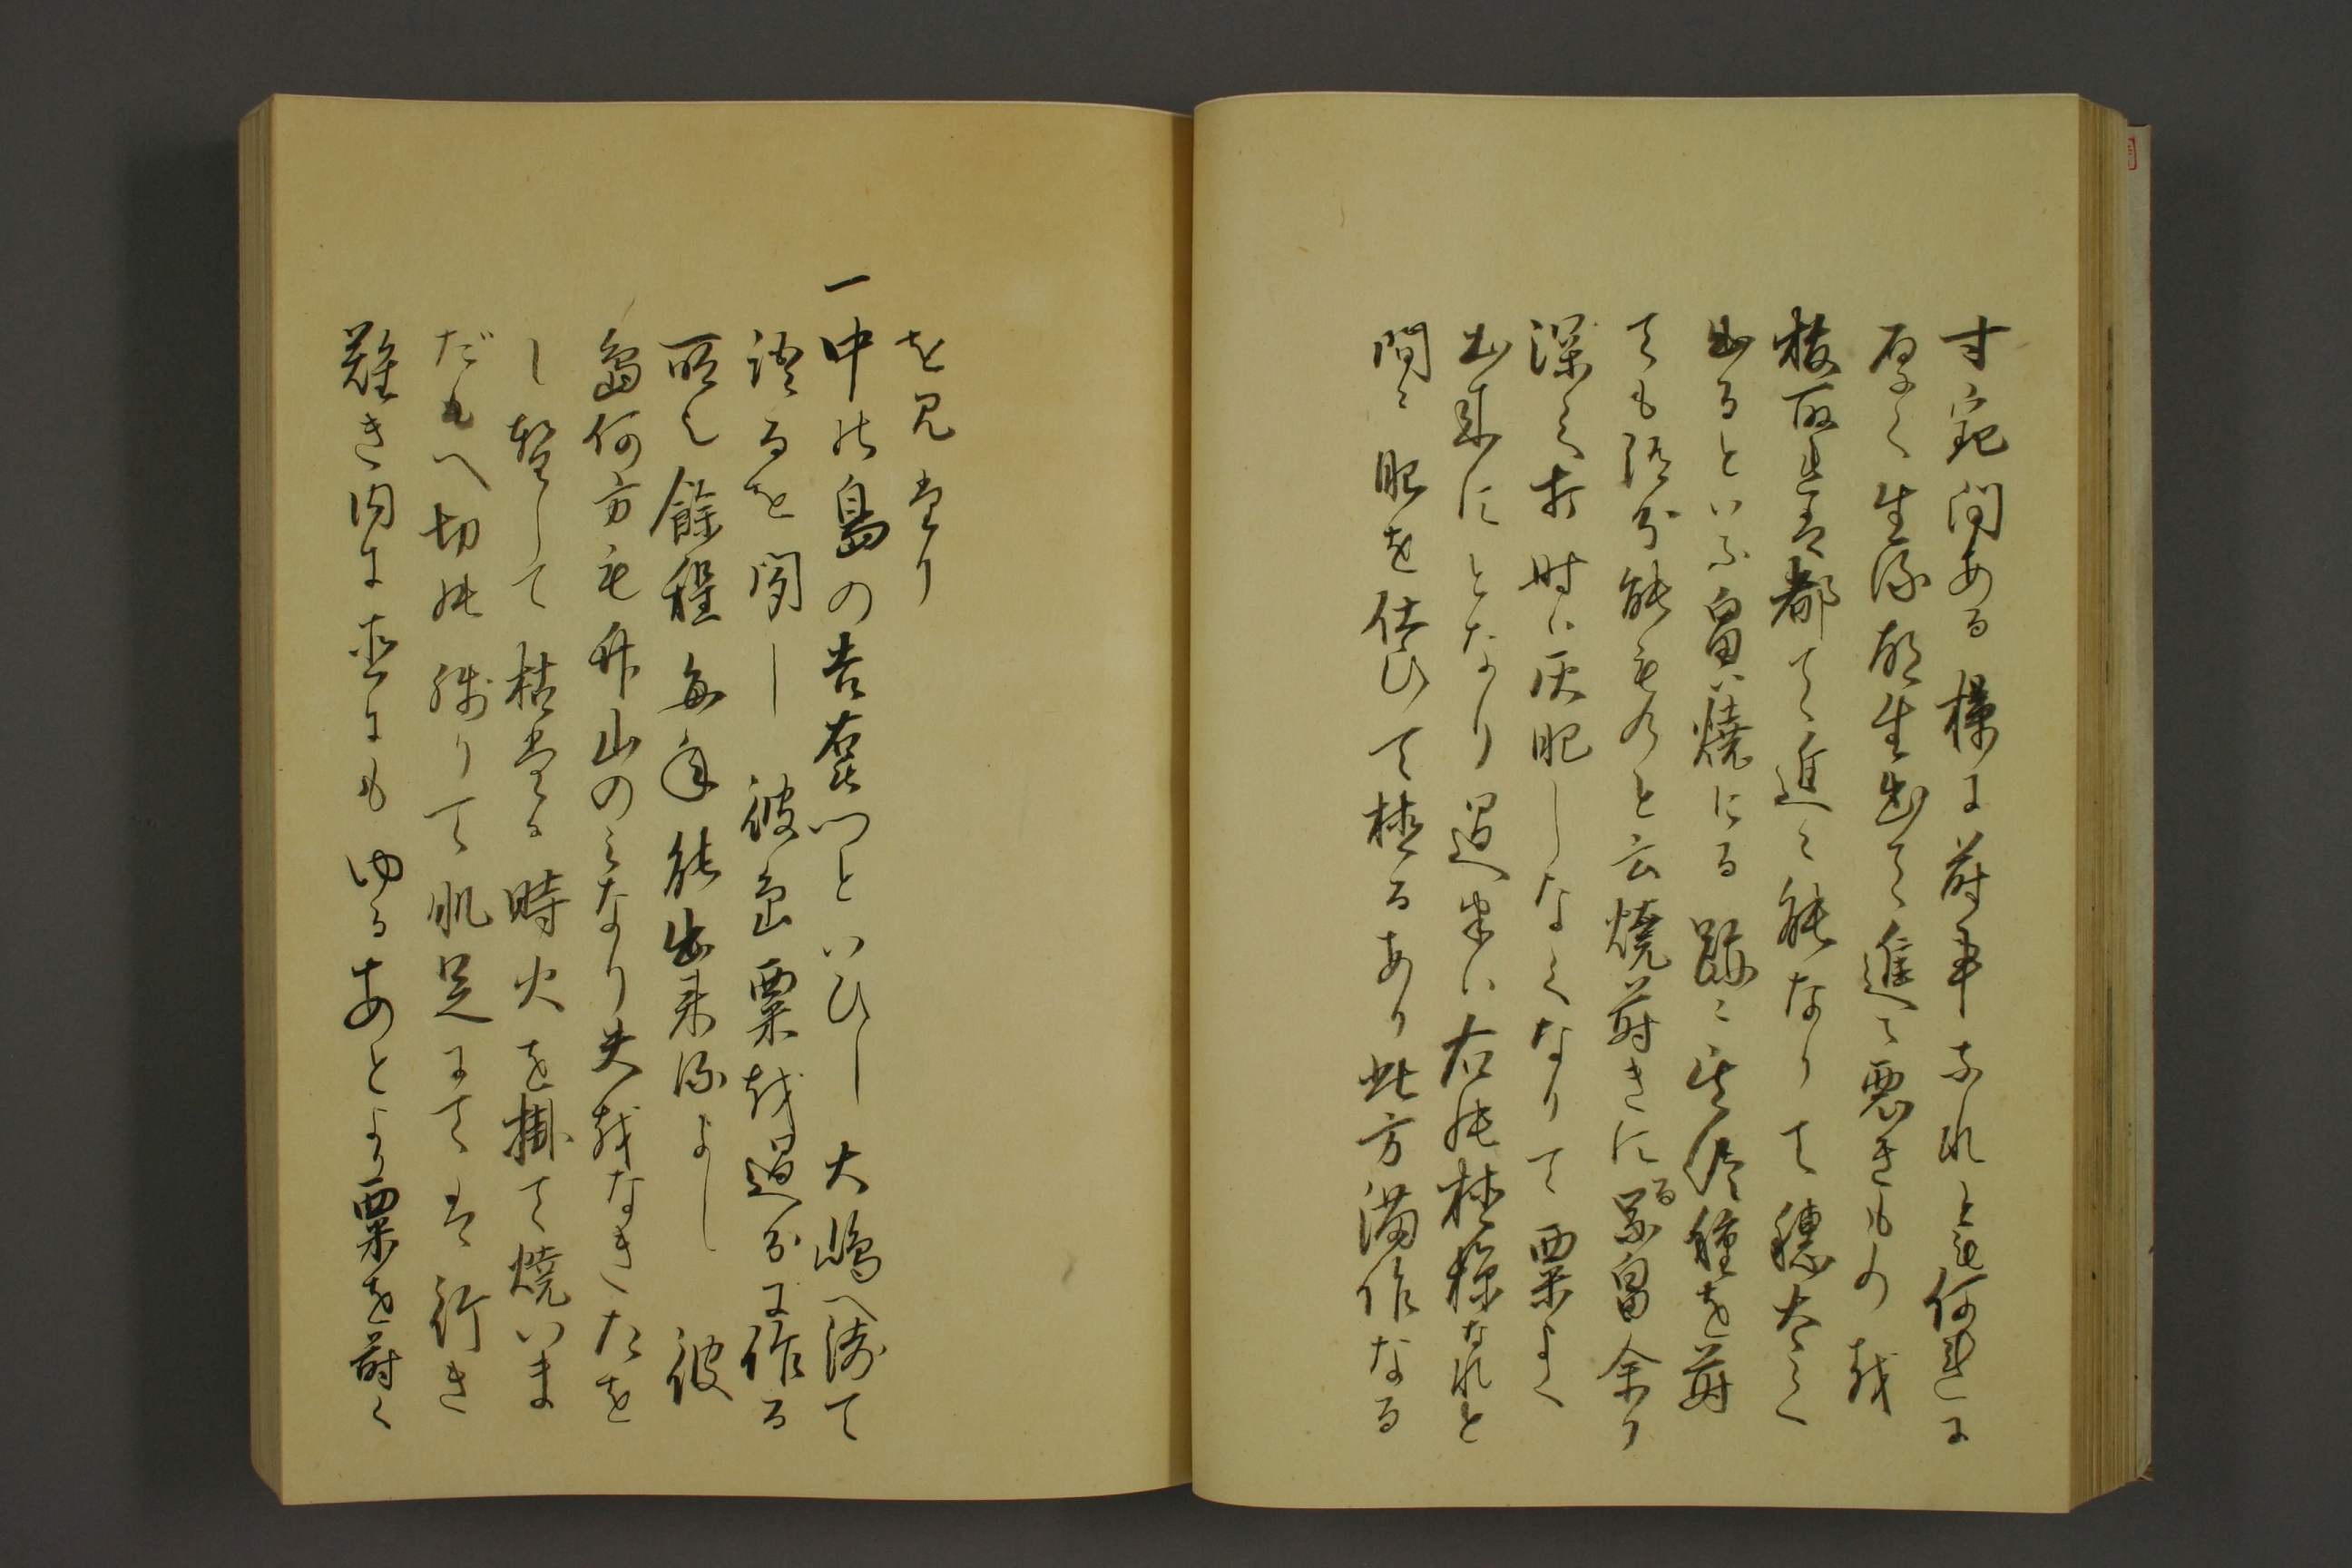 寸宛間ある様に蒔事なれとも何連に
厚く生る故生出て進て悪きもの越
枝取末者都て進て能なりて穂大く
出るといふ畠ハ焼にる跡ニ其侭種を蒔
ても随分能ものと云焼蒔きにする畠余り
深く打時ハ灰肥しなくなりて粟よく
出来にとなり過半ハ右の植様なれと
間々肥を仕ひて植るあり此方満作なる
を見たり
一中の島の吉左衛門といひし大嶋へ渡て
語るを聞し彼島粟越過分に作る
所也餘程毎年能出来るよし彼
島何方も竹山のミなり夫越なきたを
し置して枯たる時火を掛て焼いま
だもへ切の残りて肌足にて者行き
難き内に直にもゆるあとより粟を蒔く